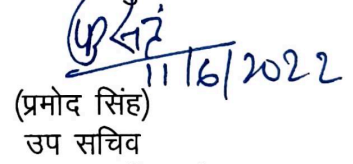 11/6/2022
(प्रमोद सिंह)
उप सचिव